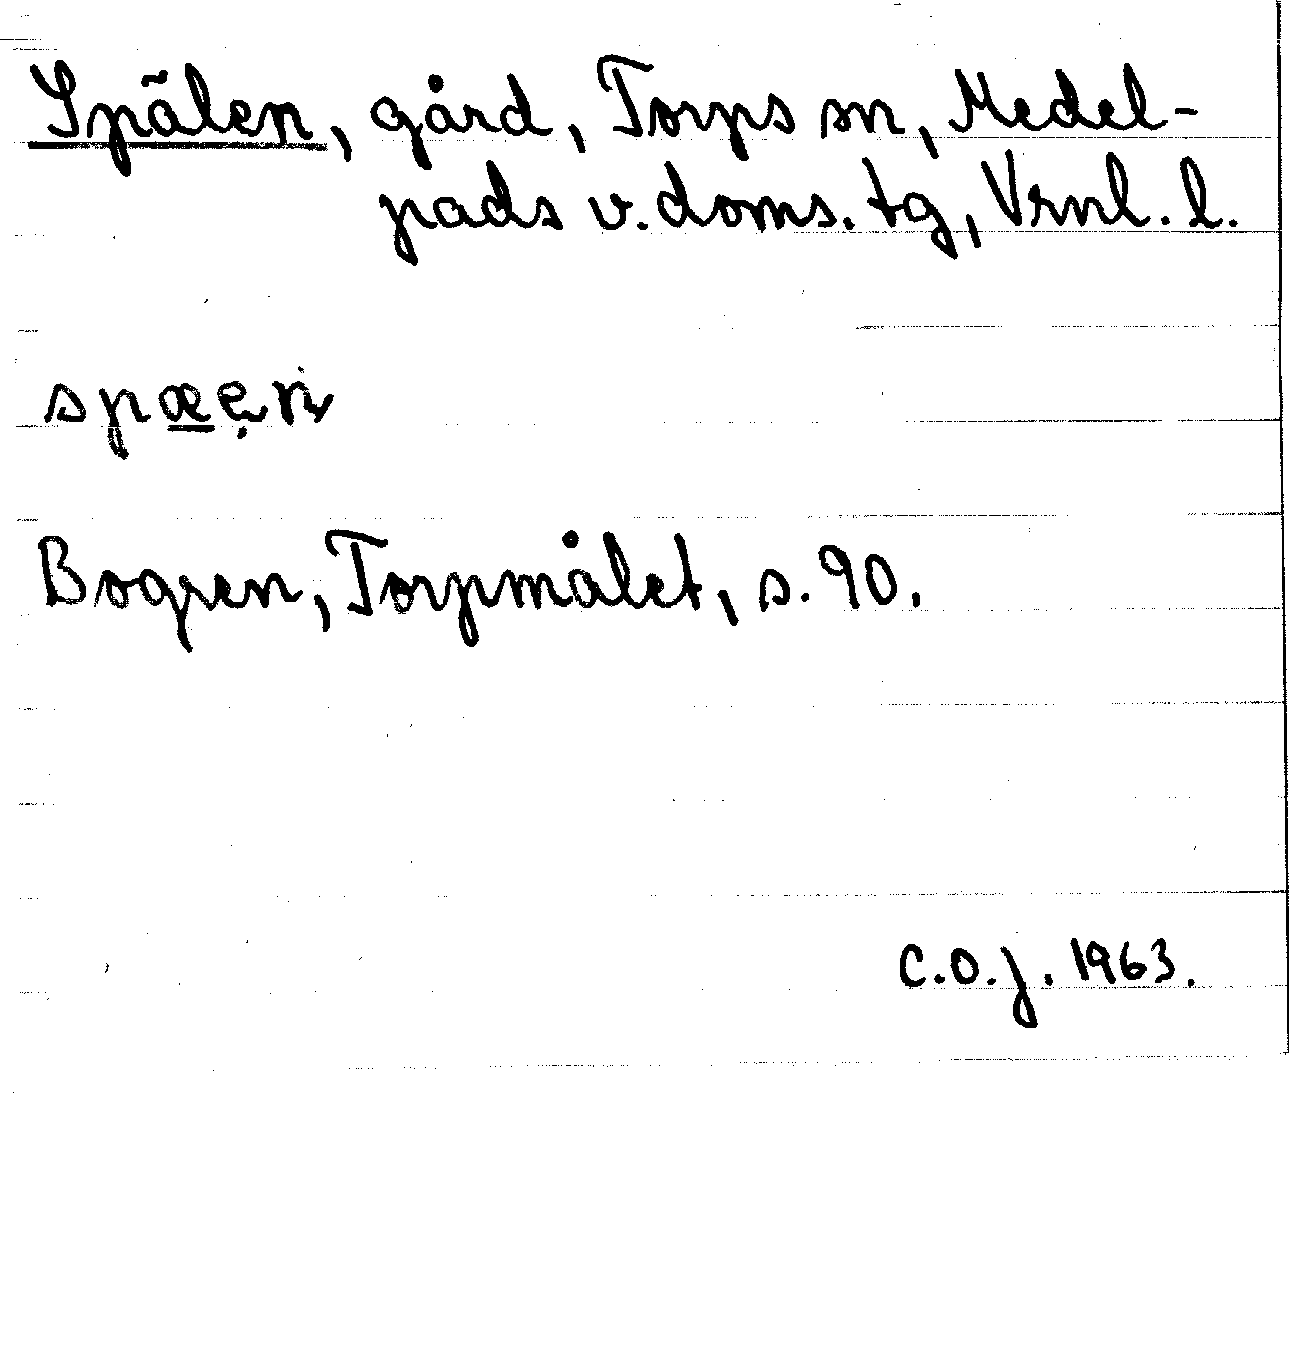 Spälen, gård, Torps sn, Medel-
pads v. doms. tg, Vrnl. l.
spæẹn
Bogren, Torpmålet, s. 90.
C.O.J. 1963.